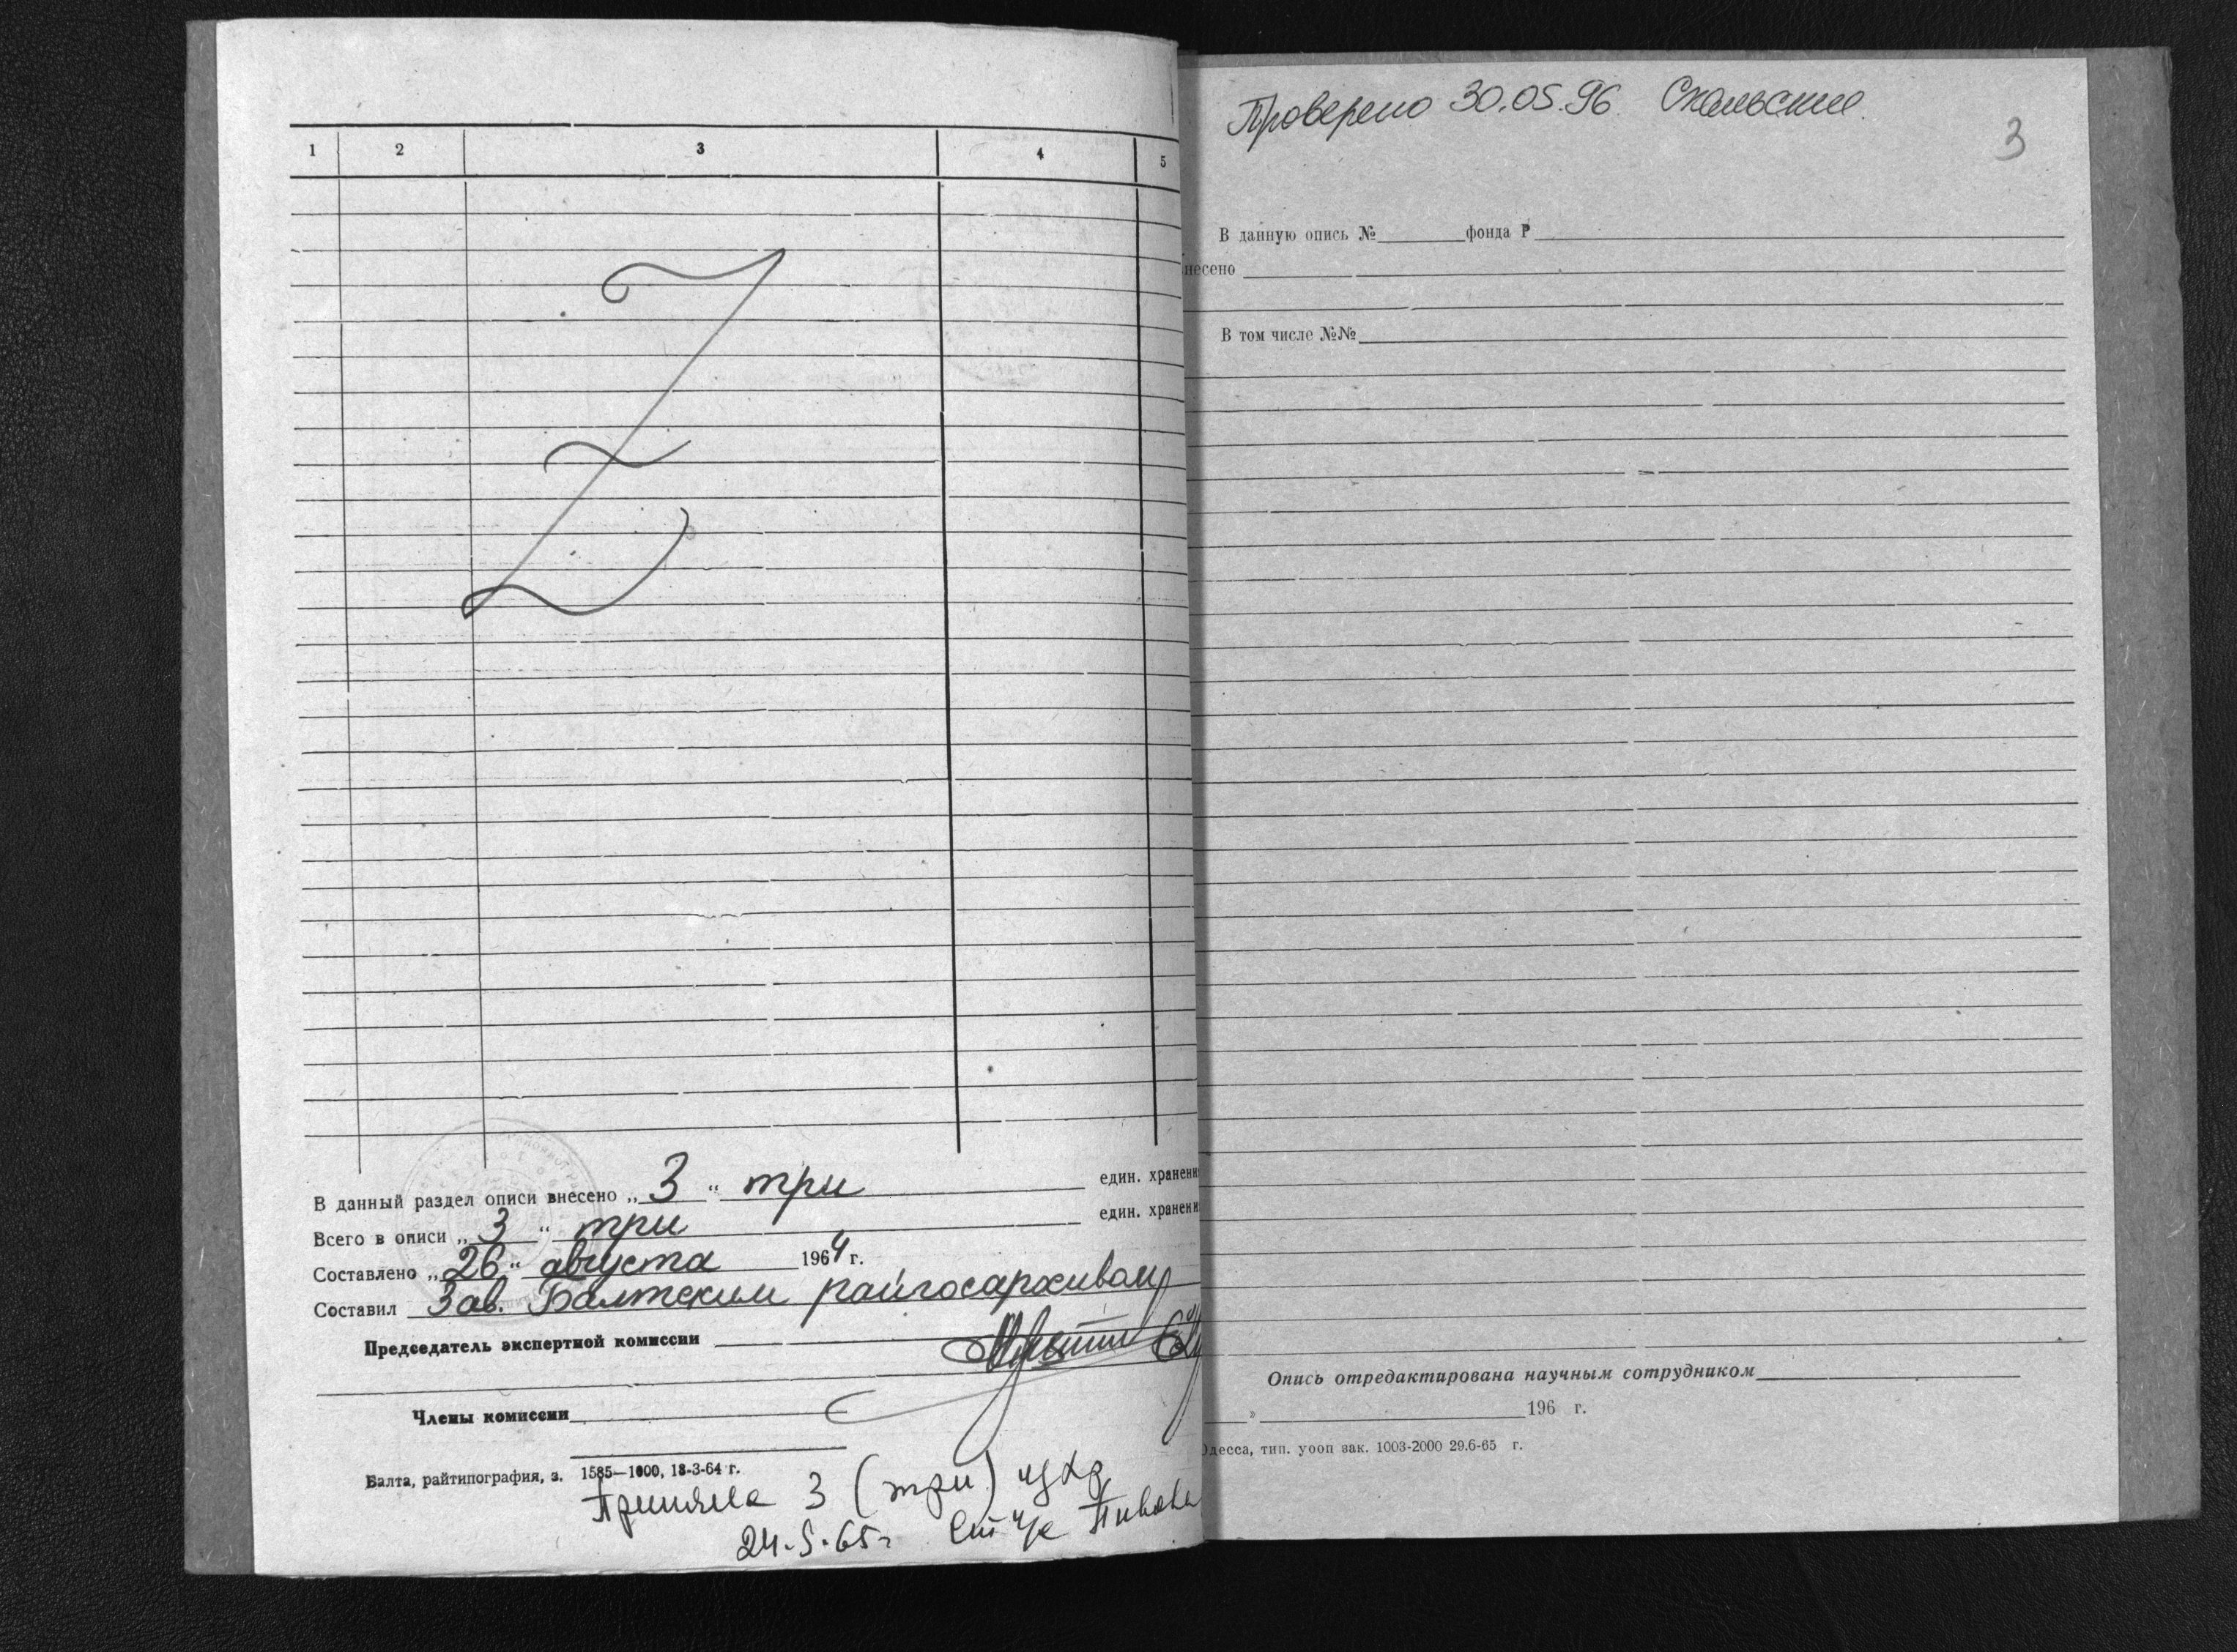 1 2 3 4 5
В данный раздел описи внесено „3“ три един. хранени
Всего в описи „3“ три един. хранени
Составлено „26“ августа 1964 г.
Составил Зав. Балтским райгосархивом
Председатель экспертной комиссии
Члены комиссии
Балта, райтипография, з. 1585—1000, 18-3-64 г.
Приняла 3 (три)
24.5.65г
Проверено 30.05.96
3
В данную опись № фонда Р
несено
В том числе №№
Опись отредактирована научным сотрудником
» 196 г.
Одесса, тип. уооп зак. 1003-2000 29.6-65 г.